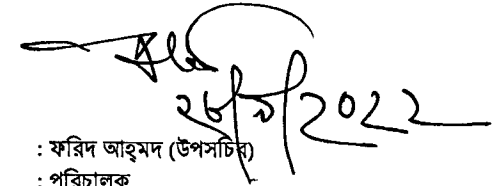 ২৮/৯/2022
: ফরিদ আহ্‌মদ (উপসচিব)
: পরিচালক